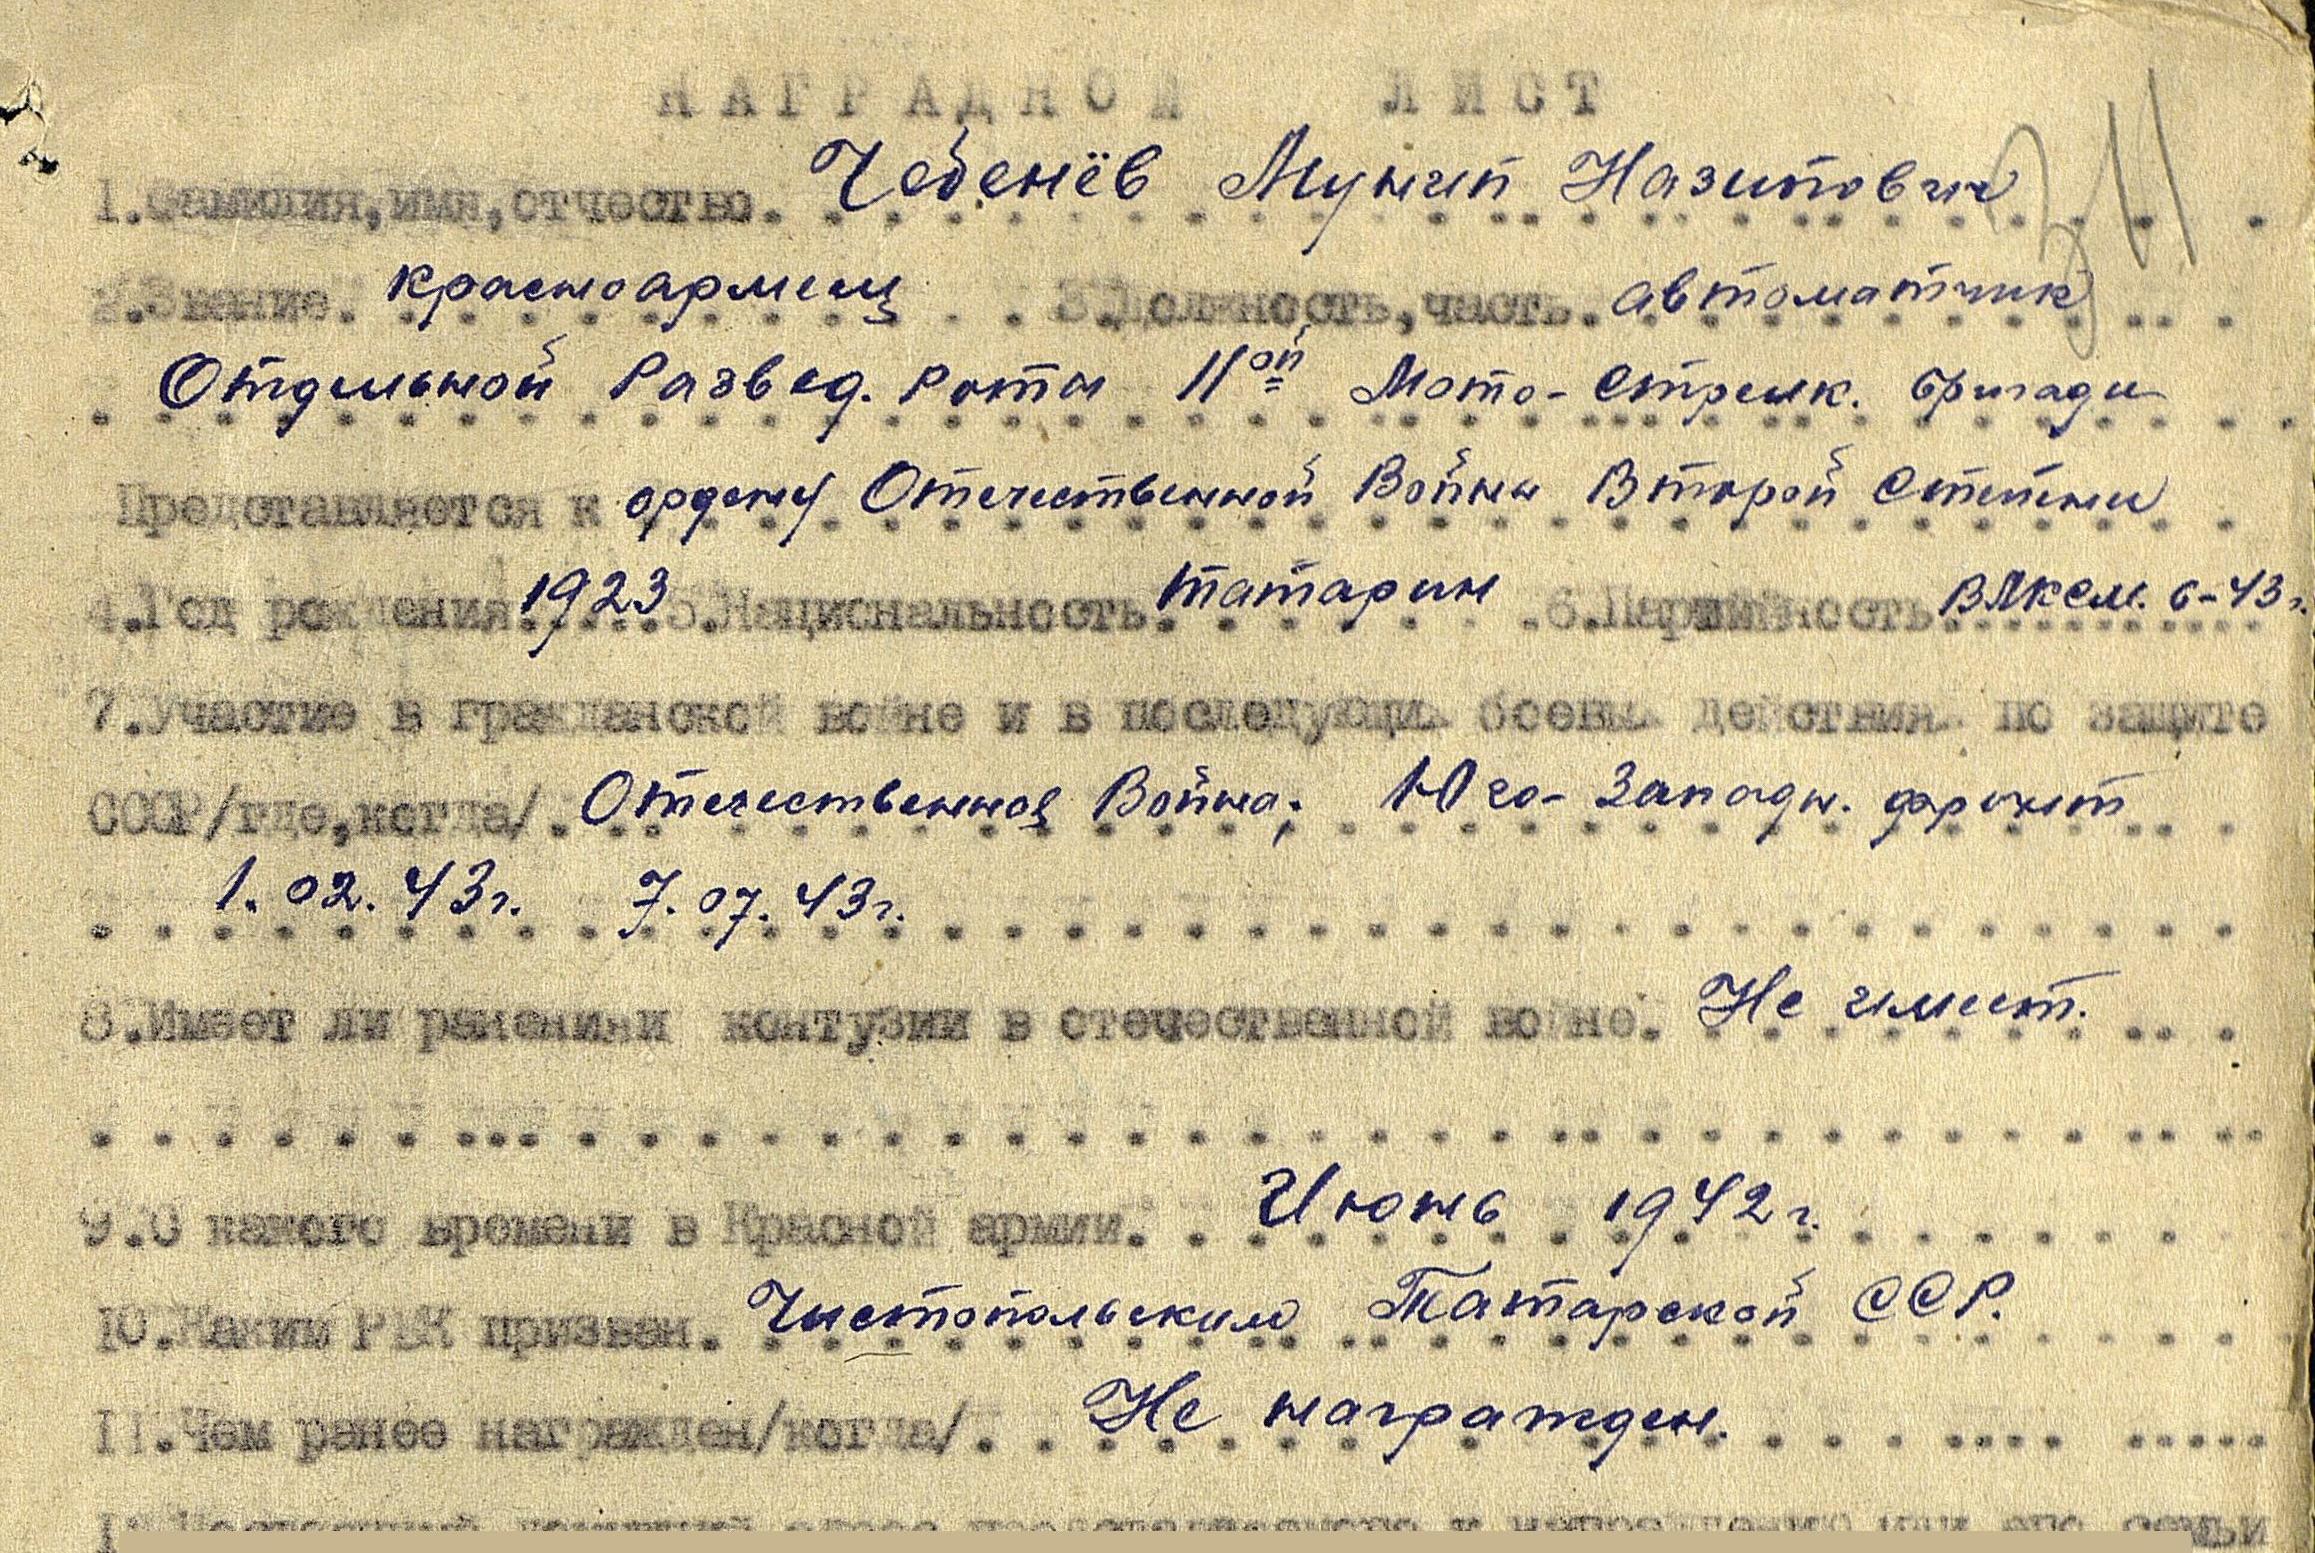 НАГРАДНОЙ ЛИСТ
311
1.Фамилия,имя,отчество. Чебенёв Мунип Назипович
2.Звание. красноармеец 3.Должность,часть. автоматчик
Отдельной Развед. Роты 11ой Мото-Стрелк. бригады
Представляется к ордену Отечественной Войны Второй Степени
4.Год рождения. 1923 5.Национальность. татарин 6.Партийность. ВЛКСМ. 6-43г.
7.Участие в гражданской войне и в последующих боевых действиях по защите
СССР/где,когда/. Отечественная Война; Юго-Западн. фронт
1.02.43г. 7.07.43г.
8.Имеет ли ранения и контузии в отечественной войне. Не имеет.
9.С какого времени в Красной армии. Июнь 1942г.
10.Каким РВК призван. Чистопольским Татарской ССР.
11.Чем ранее награжден/когда/. Не награжден.